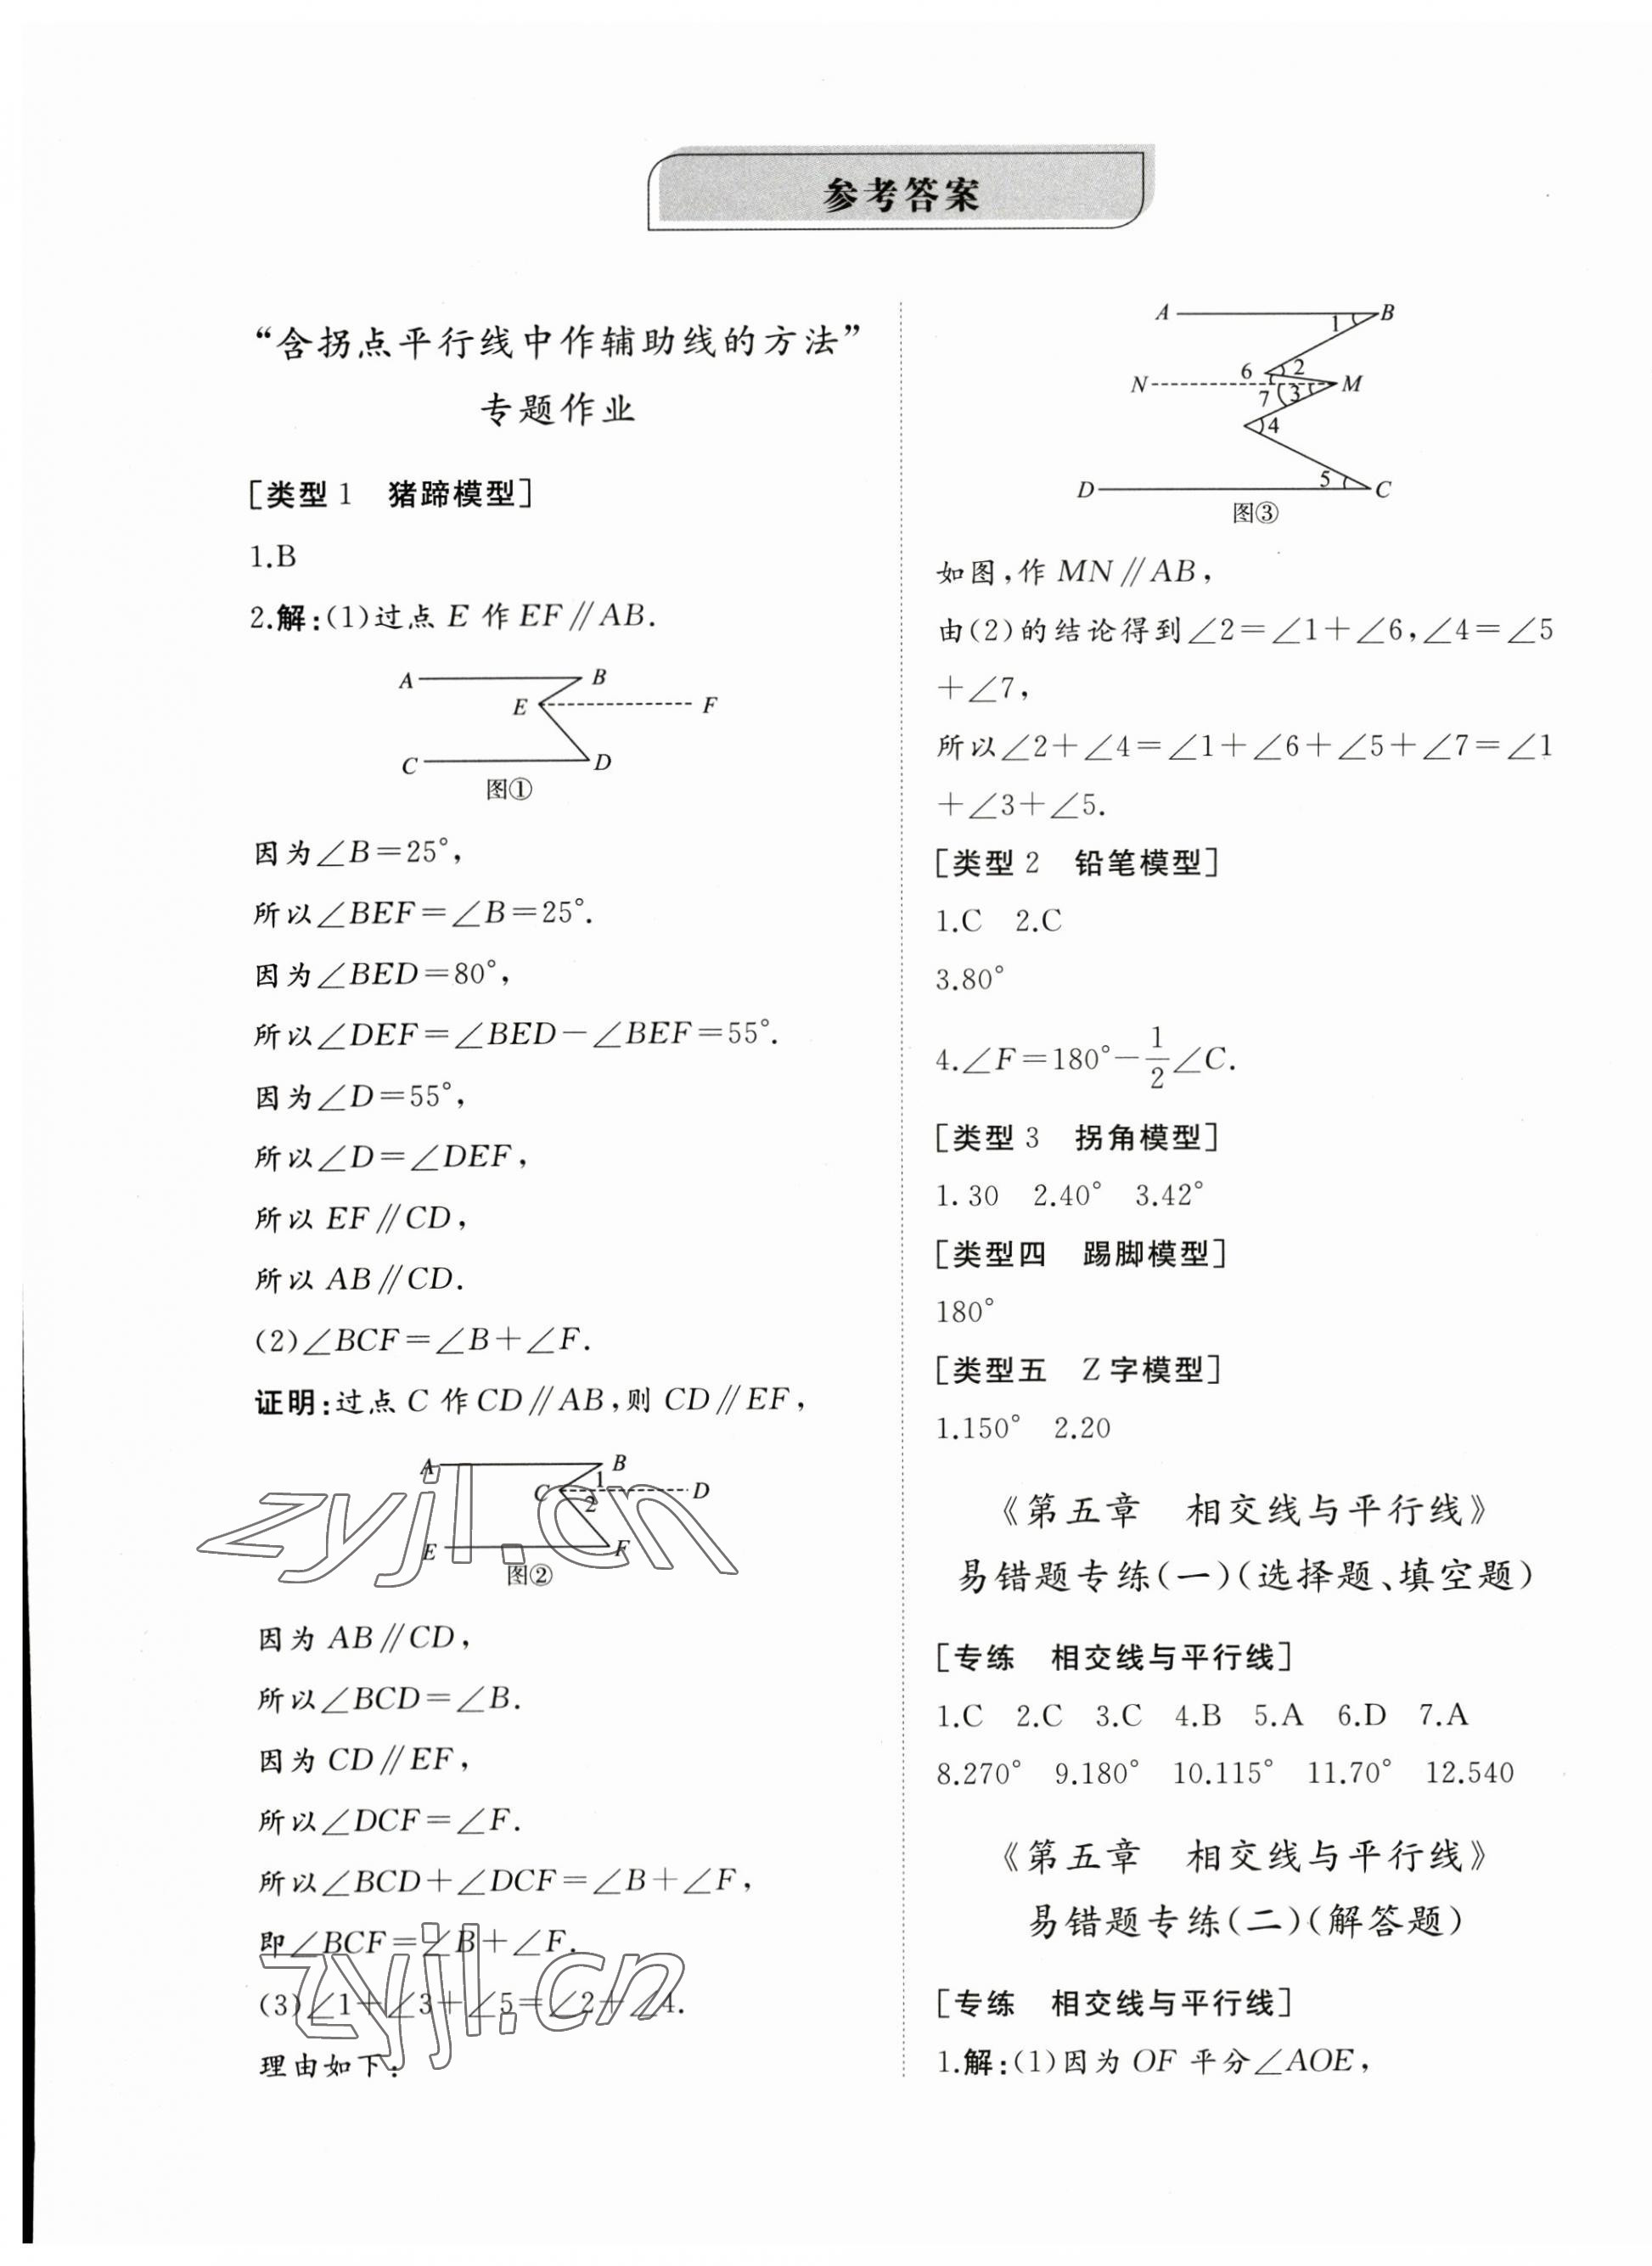 参考答案
“含拐点平行线中作辅助线的方法”
专题作业
[类型1 猪蹄模型]
1.B
2.解:(1)过点 E 作 EF∥AB.
A B
E F
C D
图①
因为∠B=25°,
所以∠BEF=∠B=25°.
因为∠BED=80°,
所以∠DEF=∠BED-∠BEF=55°.
因为∠D=55°,
所以∠D=∠DEF,
所以 EF∥CD,
所以 AB∥CD.
(2)∠BCF=∠B+∠F.
证明:过点 C 作 CD∥AB,则 CD∥EF,
A B
1
C D
2
E F
图②
zyjl.cn
因为 AB∥CD,
所以∠BCD=∠B.
因为 CD∥EF,
所以∠DCF=∠F.
所以∠BCD+∠DCF=∠B+∠F,
即∠BCF=∠B+∠F.
zyjl.cn
(3)∠1+∠3+∠5=∠2+∠4.
理由如下:
A B
1
6 2
N M
7 3
4
5
D C
图③
如图,作 MN∥AB,
由(2)的结论得到∠2=∠1+∠6,∠4=∠5
+∠7,
所以∠2+∠4=∠1+∠6+∠5+∠7=∠1
+∠3+∠5.
[类型2 铅笔模型]
1.C 2.C
3.80°
4.∠F=180°-1/2∠C.
[类型3 拐角模型]
1. 30 2.40° 3.42°
[类型四 踢脚模型]
180°
[类型五 Z字模型]
1.150° 2.20
《第五章 相交线与平行线》
易错题专练(一)(选择题、填空题)
[专练 相交线与平行线]
1.C 2.C 3.C 4.B 5.A 6.D 7.A
8.270° 9.180° 10.115° 11.70° 12.540
《第五章 相交线与平行线》
易错题专练(二)(解答题)
[专练 相交线与平行线]
1.解:(1)因为 OF 平分∠AOE,